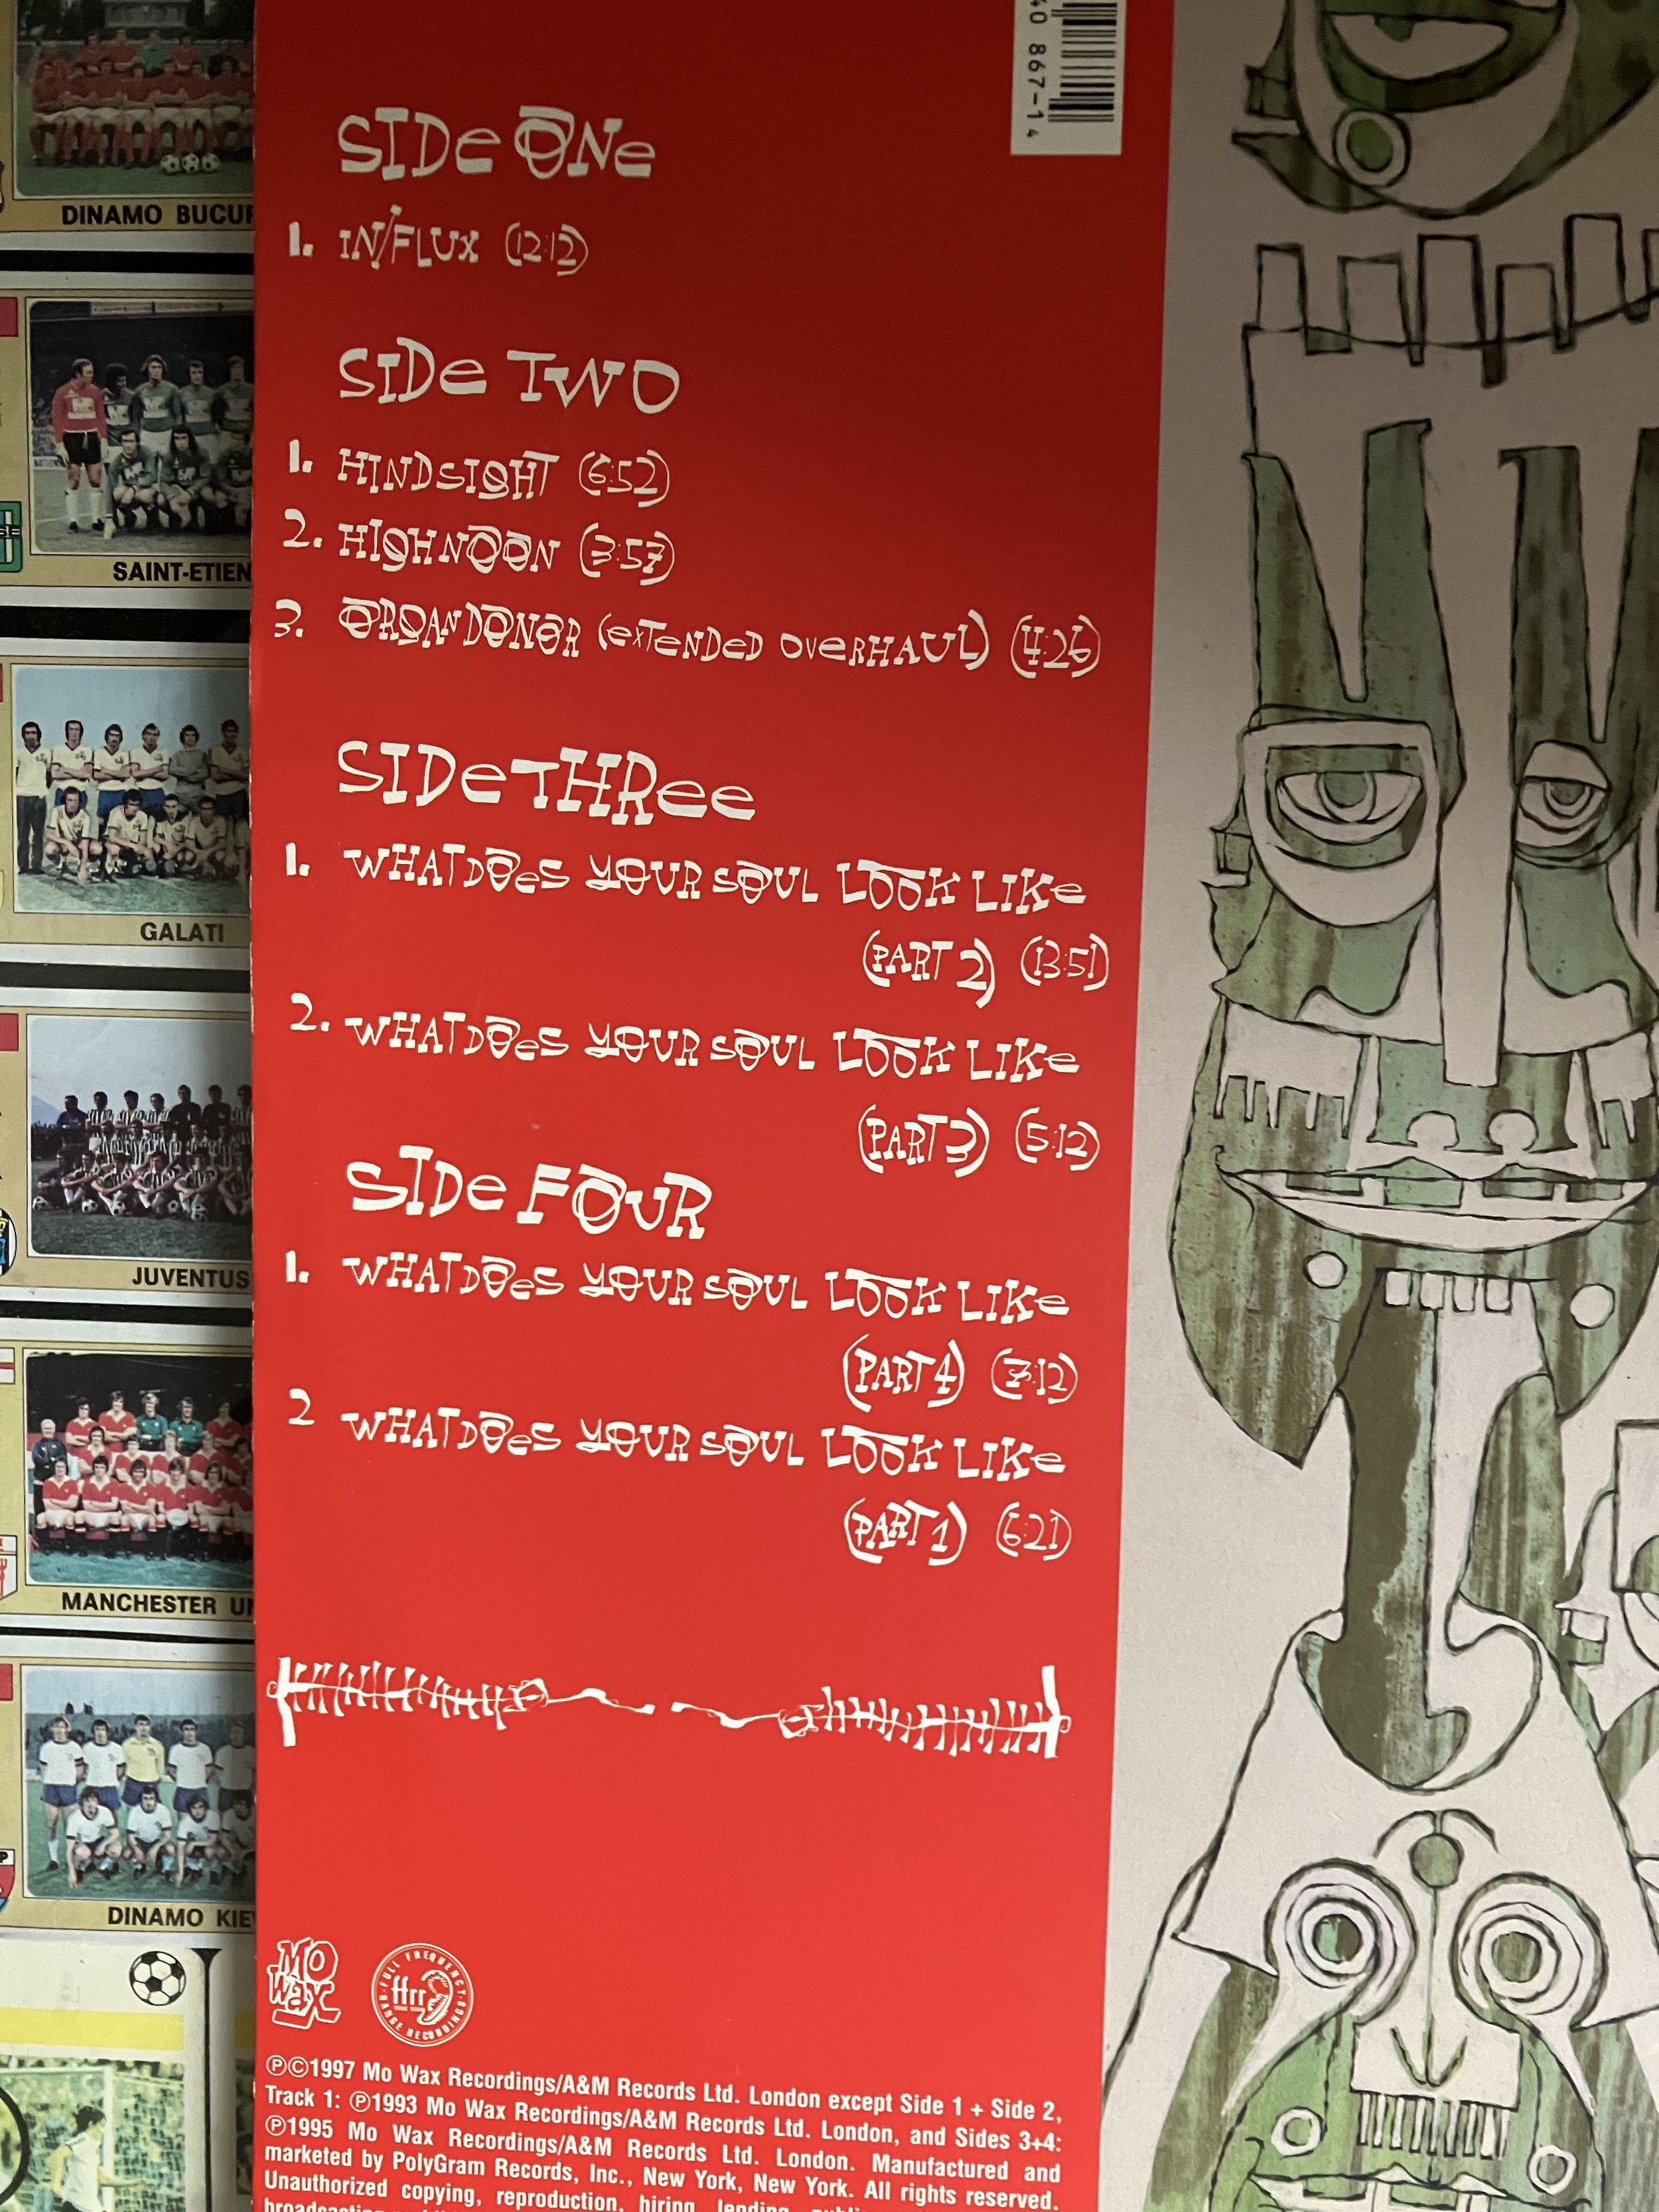 40 867-1 4
SIDE ONE
1. IN/FLUX (12:12)
SIDE TWO
1. HINDSIGHT (6:52)
2. HIGH NOON (3:57)
3. ORGAN DONOR (EXTENDED OVERHAUL) (4:26)
SIDE THREE
1. WHAT DOES YOUR SOUL LOOK LIKE
(PART 2) (13:51)
2. WHAT DOES YOUR SOUL LOOK LIKE
(PART 3) (5:12)
SIDE FOUR
1. WHAT DOES YOUR SOUL LOOK LIKE
(PART 4) (7:12)
2 WHAT DOES YOUR SOUL LOOK LIKE
(PART 1) (6:21)
MO WAX
FULL FREQUENCY RANGE RECORDINGS
ffrr
℗©1997 Mo Wax Recordings/A&M Records Ltd. London except Side 1 + Side 2,
Track 1: ℗1993 Mo Wax Recordings/A&M Records Ltd. London, and Sides 3+4:
℗1995 Mo Wax Recordings/A&M Records Ltd. London. Manufactured and
marketed by PolyGram Records, Inc., New York, New York. All rights reserved.
Unauthorized copying, reproduction, hiring, lending,
DINAMO BUCUR
SAINT-ETIEN
GALATI
JUVENTUS
MANCHESTER UN
DINAMO KIE